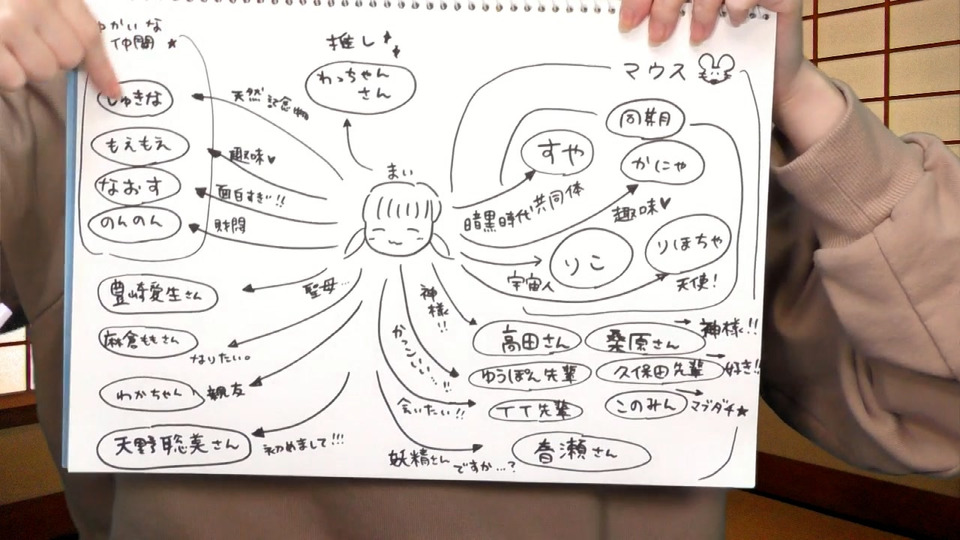 かいな
仲間★
しゅきな
天然記念物
もえもえ
趣味♥
なおす
面白すぎ!!
のんのん
財閥
推し
わっちゃん
さん
まい
マウス
同期
すや
暗黒時代共同体
かにゃ
趣味♥
りこ
宇宙人
りほちゃ
天使!
豊崎愛生さん
聖母…
麻倉ももさん
なりたい。
わかちゃん
親友
天野聡美さん
初めまして!!!
高田さん
神様!!
桑原さん
神様!!
ゆうぽん先輩
かっこいい…!!
久保田先輩
好き!!
TT先輩
会いたい!!
このみん
マブダチ★
音瀬さん
妖精さん
ですか…?